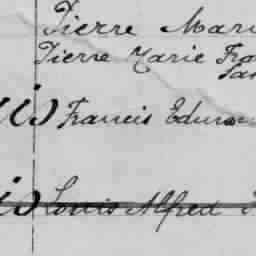 Pierre Mari
Pierre Marie Fra
(i) Francis Edwa
(i) Louis Alfred